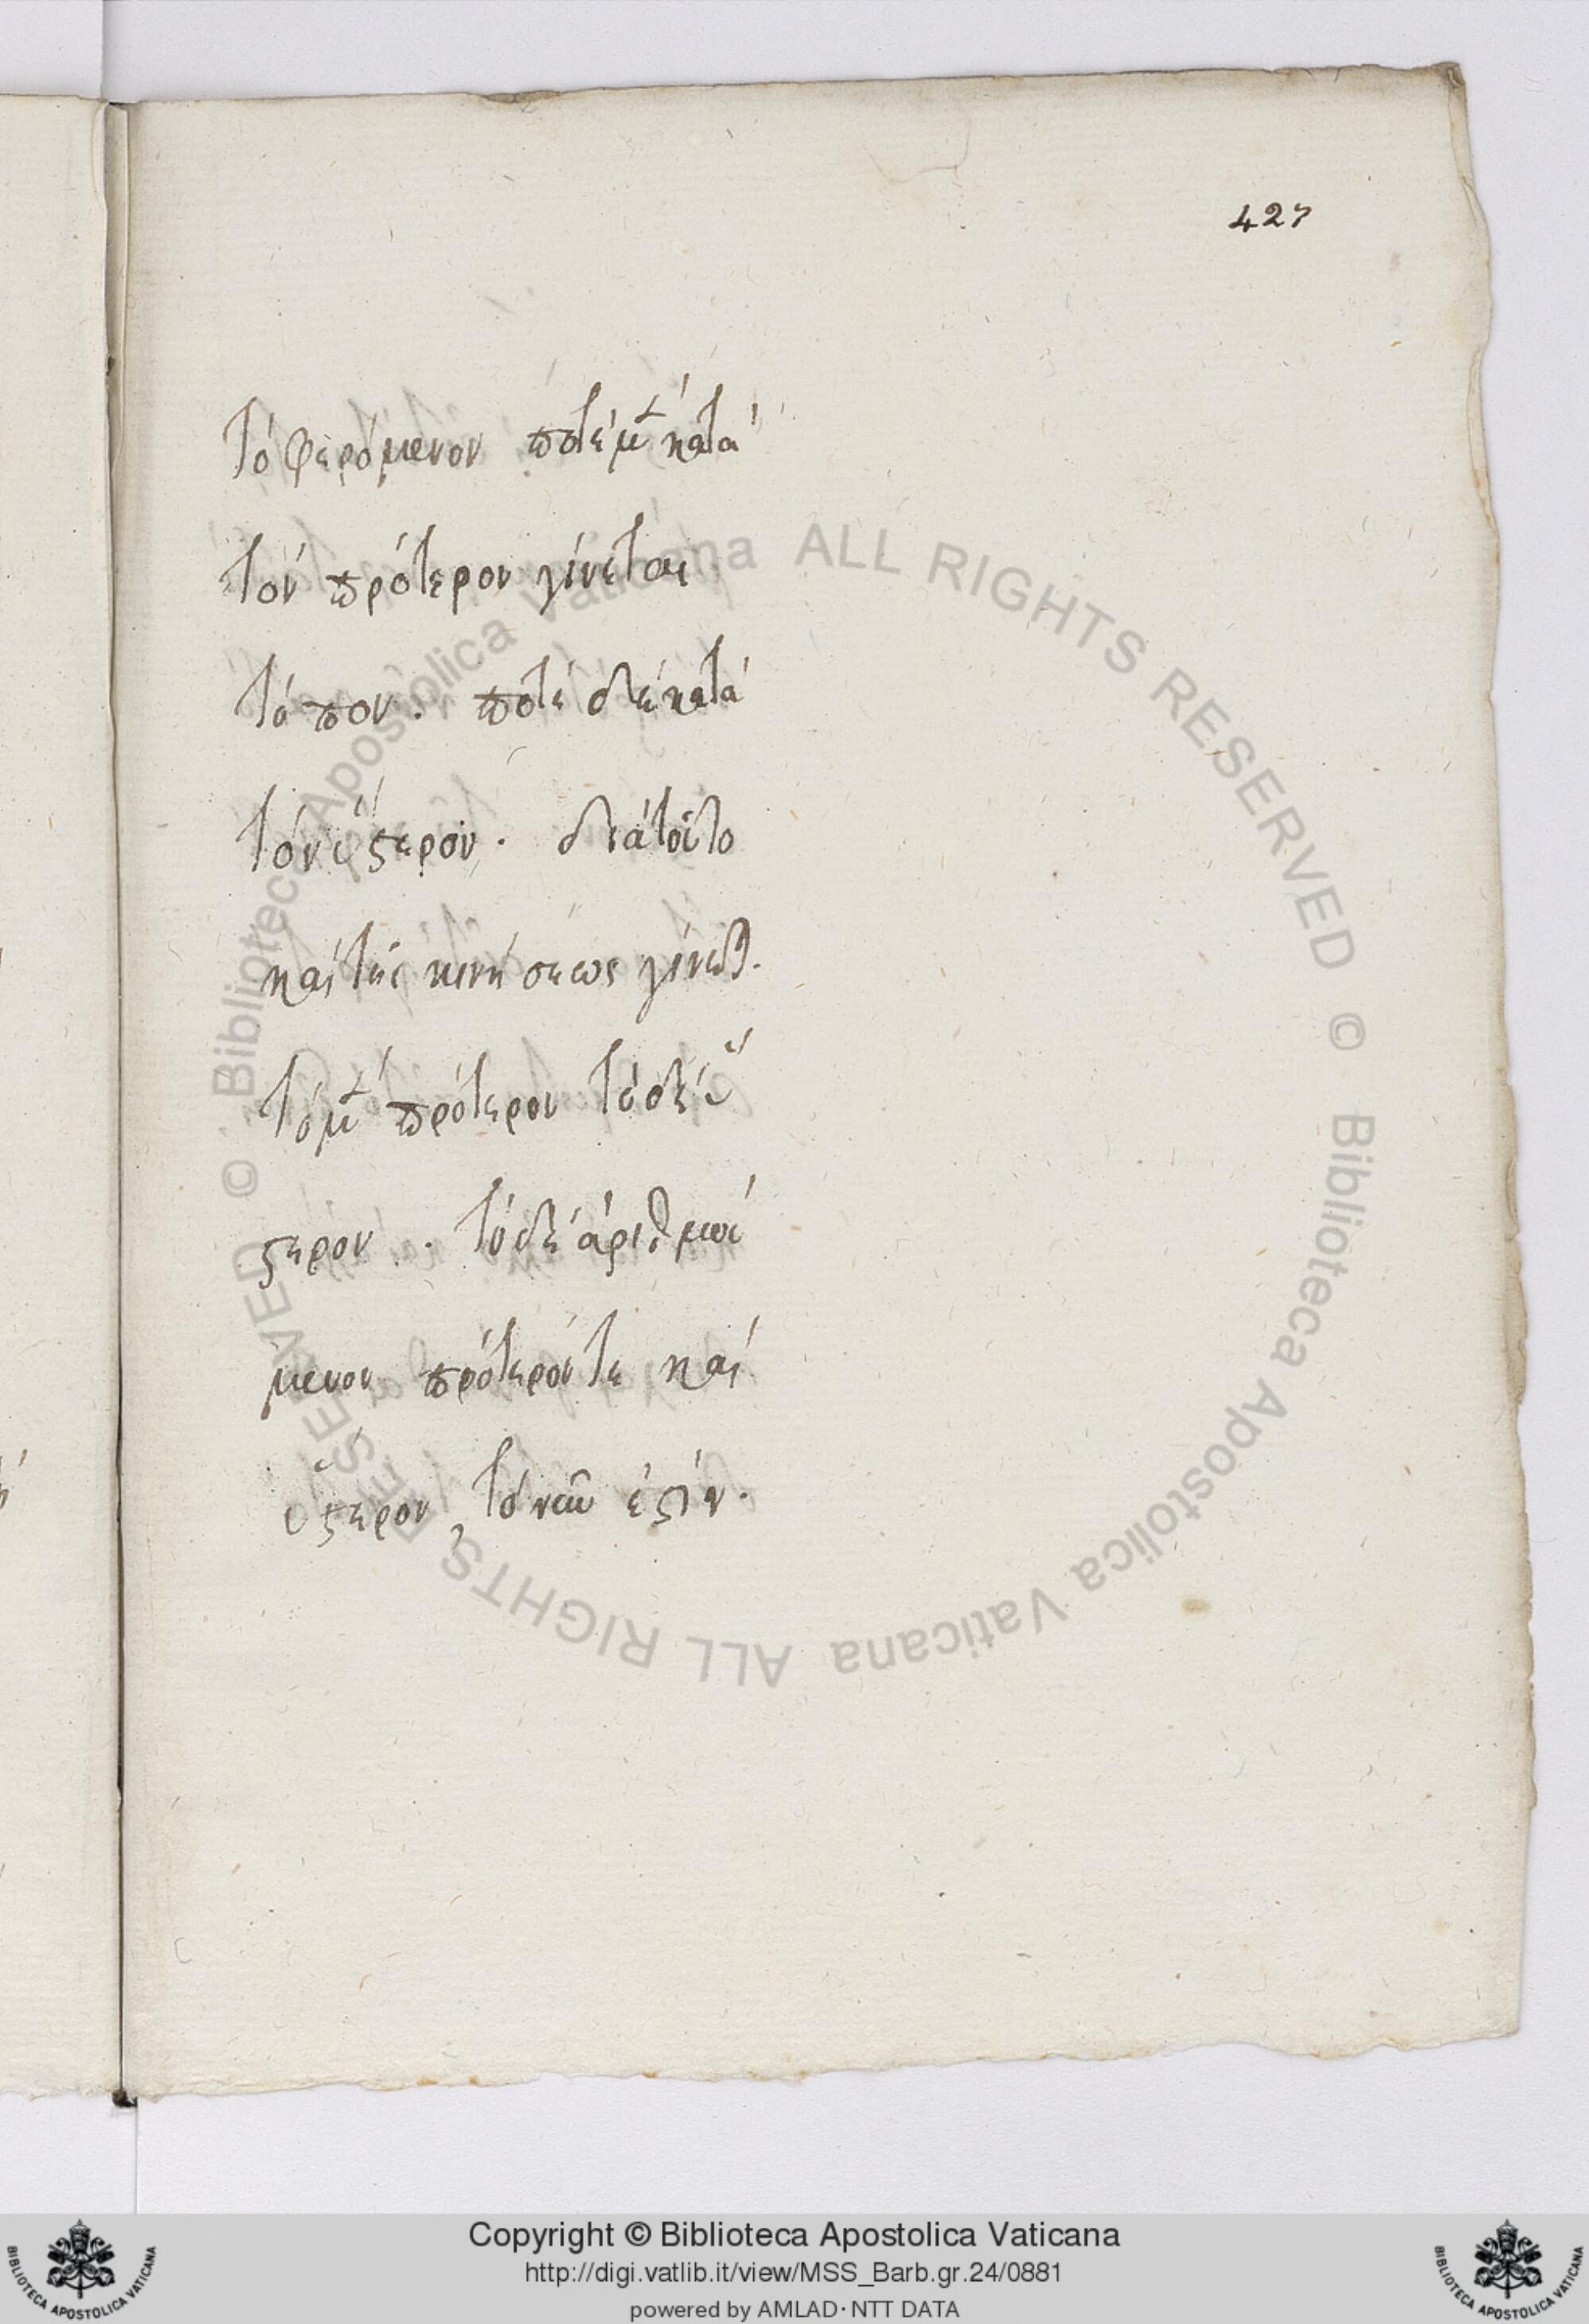 427
τὸ φερόμενον ποτὲ μ̃ κατὰ
τὸν πρότερον γίνεται
τόπον. ποτὲ δὲ κατὰ
τὸν ὕϛερον. διὰ τοῦτο
καὶ τῆς κινήσεως γίνεται.
τὸ μ̃ πρότερον τὸ δὲ ὕ
ϛερον. τὸ δὲ ἀριθμού
μενον πρότερόν τε καὶ
ὕϛερον, τὸ νῦν ἐϛίν.
© Biblioteca Apostolica Vaticana ALL RIGHTS RESERVED © Biblioteca Apostolica Vaticana ALL RIGHTS RESERVED
Copyright © Biblioteca Apostolica Vaticana
http://digi.vatlib.it/view/MSS_Barb.gr.24/0881
powered by AMLAD·NTT DATA
BIBLIOTECA APOSTOLICA VATICANA
BIBLIOTECA APOSTOLICA VATICANA